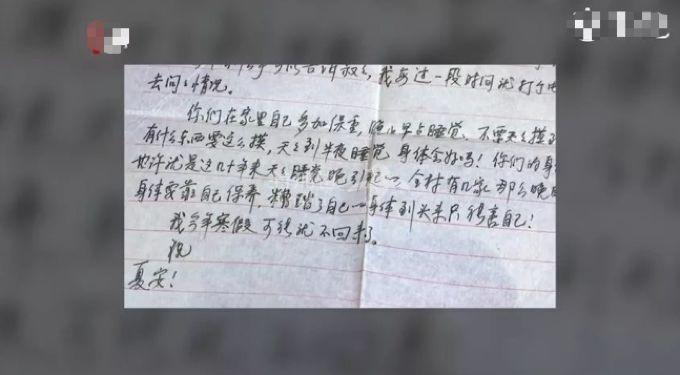 我每过一段时间就打个电
去问问情况。
你们在家里自己多加保重，晚上早点睡觉，不要天天摸到
有什么东西要这么摸，天天到半夜睡觉 身体会好吗！你们的身
也许就是这几十年来天天睡觉晚引起的。全村有几家 那么晚
身体要靠自己保养，糟踏了自己的身体到头来只能害自己！
我今年寒假可能就不回来了。
祝
夏安！